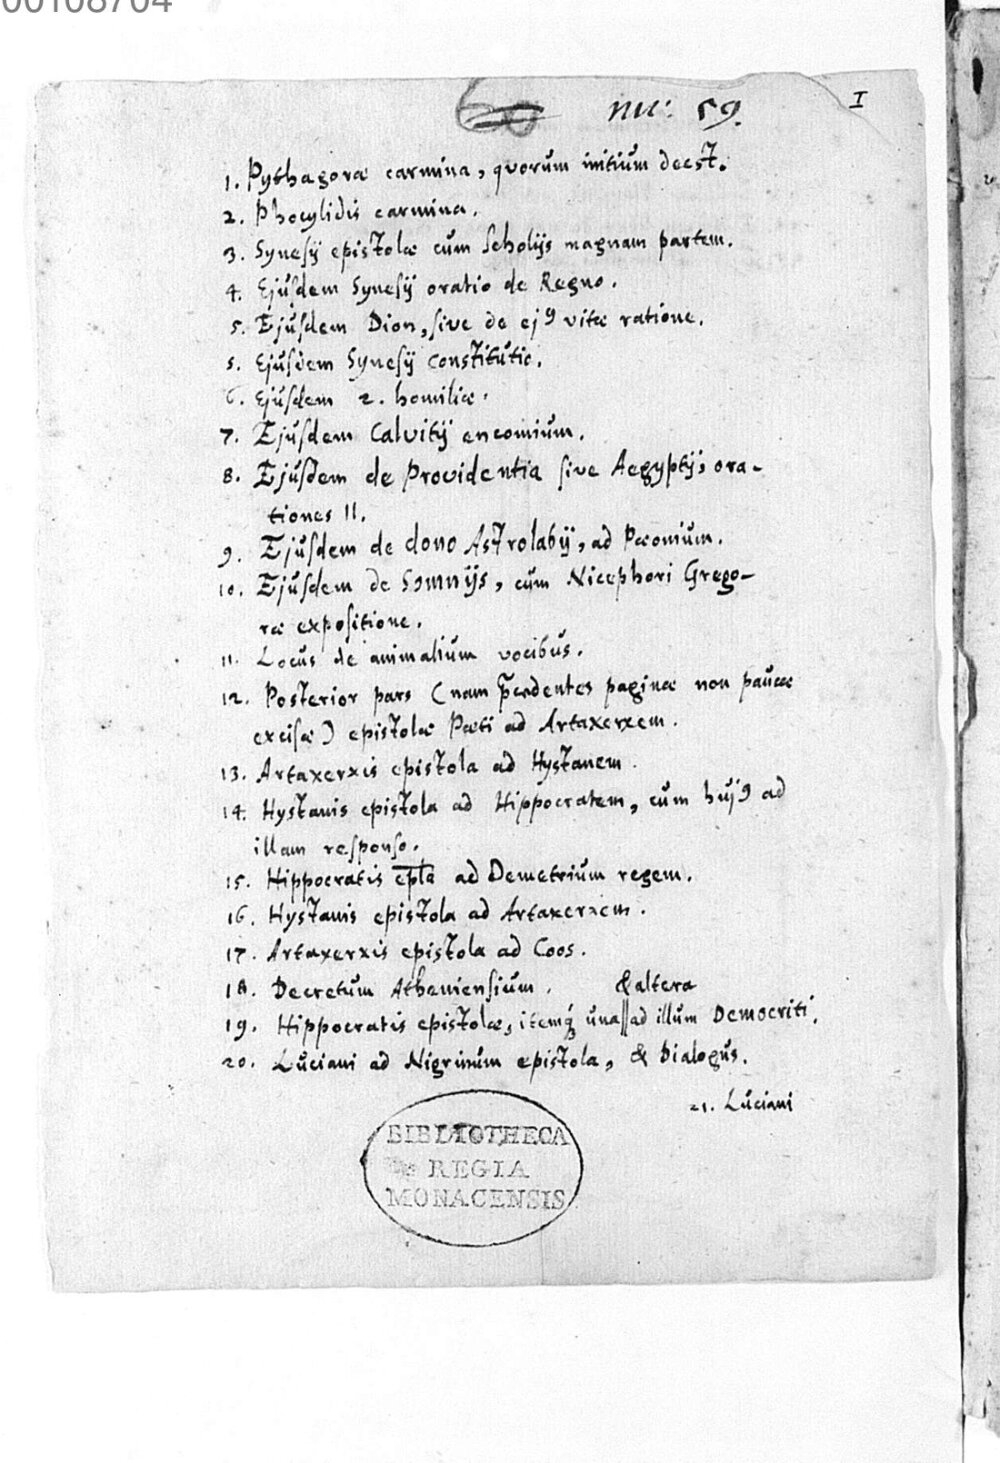 00108704
60 nu: 59. I
1. Pythagoræ carmina, quorum initium deest.
2. Phocylidis carmina.
3. Synesij epistolæ cum scholijs magnam partem.
4. Ejusdem Synesij oratio de Regno.
5. Ejusdem Dion, sive de ejꝰ vitæ ratione.
5. Ejusdem Synesij Constitutio.
6. Ejusdem 2. homiliæ.
7. Ejusdem Calvitij encomium.
8. Ejusdem de Providentia sive Aegyptij, ora-
tiones II.
9. Ejusdem de dono Astrolabij, ad Pæonium.
10. Ejusdem de Somnijs, cum Nicephori Grego-
ræ expositione.
11. Locus de animalium vocibus.
12. Posterior pars (nam p̄cedentes paginæ non paucæ
excisæ) epistolæ Pæti ad Artaxerxem.
13. Artaxerxis epistola ad Hystanem.
14. Hystanis epistola ad Hippocratem, cum hujꝰ ad
illam responso.
15. Hippocratis ep̄la ad Demetrium regem.
16. Hystanis epistola ad Artaxerxem.
17. Artaxerxis epistola ad Coos.
18. Decretum Atheniensium. & altera
19. Hippocratis epistolæ, itemq́ una || ad illum Democriti.
20. Luciani ad Nigrinum epistola, & Dialogus.
21. Luciani
BIBLIOTHECA
REGIA
MONACENSIS